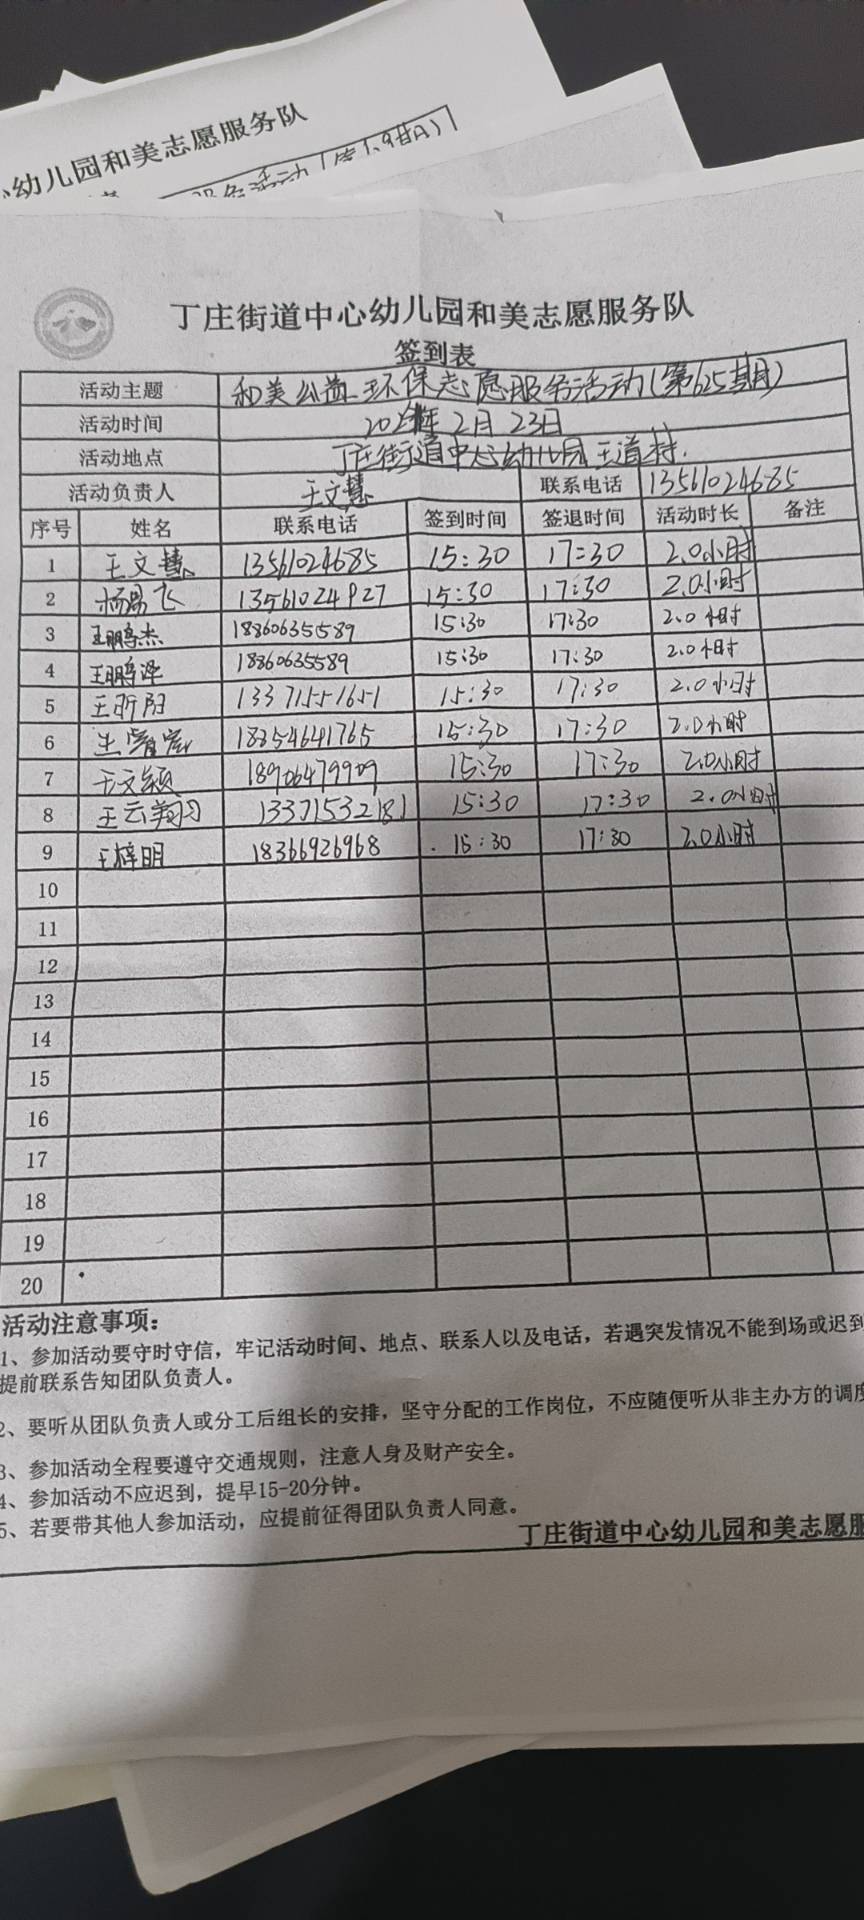 幼儿园和美志愿服务队
服务活动
丁庄街道中心幼儿园和美志愿服务队
签到表
活动主题 和美公益 环保志愿服务活动(第625期)
活动时间 2月23日
活动地点 丁庄街道中心幼儿园 王道村.
活动负责人 王文慧 联系电话 13561024685
序号 姓名 联系电话 签到时间 签退时间 活动时长 备注
1 王文慧 13561024685 15:30 17:30 2.0小时
2 杨易飞 13561024927 15:30 17:30 2.0小时
3 王鹏杰 18860635589 15:30 17:30 2.0小时
4 王鹏泽 18860635589 15:30 17:30 2.0小时
5 王昕阳 13371551651 15:30 17:30 2.0小时
6 18354641765 15:30 17:30 2.0小时
7 王文颖 18906479909 15:30 17:30 2.0小时
8 王云翔 13371532181 15:30 17:30 2.0小时
9 王梓明 18366926968 15:30 17:30 2.0小时
10
11
12
13
14
15
16
17
18
19
20
活动注意事项：
1、参加活动要守时守信，牢记活动时间、地点、联系人以及电话，若遇突发情况不能到场或迟到
提前联系告知团队负责人。
2、要听从团队负责人或分工后组长的安排，坚守分配的工作岗位，不应随便听从非主办方的调度
3、参加活动全程要遵守交通规则，注意人身及财产安全。
4、参加活动不应迟到，提早15-20分钟。
5、若要带其他人参加活动，应提前征得团队负责人同意。
丁庄街道中心幼儿园和美志愿服